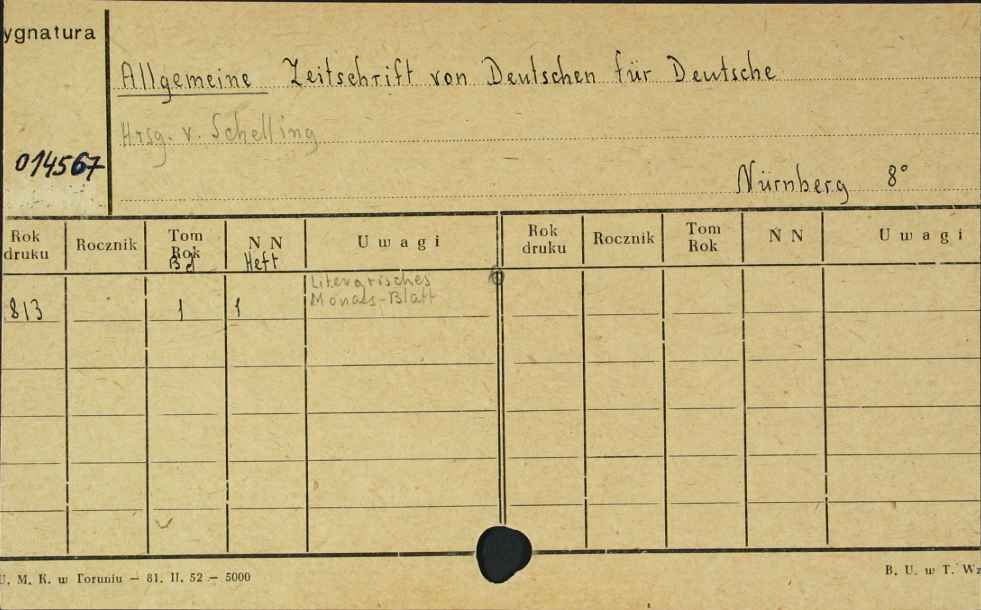 ygnatura
Allgemeine Zeitschrift von Deutschen für Deutsche
Hrsg. v. Schelling
014567
Nürnberg 8°
Rok druku Rocznik Tom Rok N N Uwagi Rok druku Rocznik Tom Rok N N Uwagi
Bd Heft
813 1 1 Literarisches
Monats-Blatt
U. M. K. w Toruniu — 81. II. 52 — 5000
B. U. w T. Wz